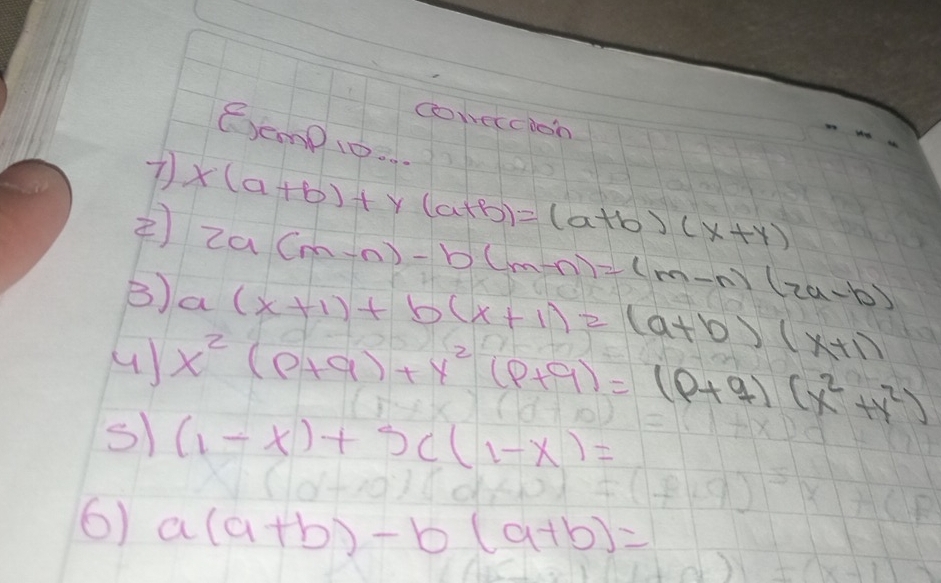 corrección
Ejemplo...
1) x(a+b)+y(a+b)=(a+b)(x+y)
2) 2a(m-n)-b(m-n)=(m-n)(2a-b)
3) a(x+1)+b(x+1)=(a+b)(x+1)
4) x²(p+q)+y²(p+q)=(p+q)(x²+y²)
5) (1-x)+5c(1-x)=
6) a(a+b)-b(a+b)=